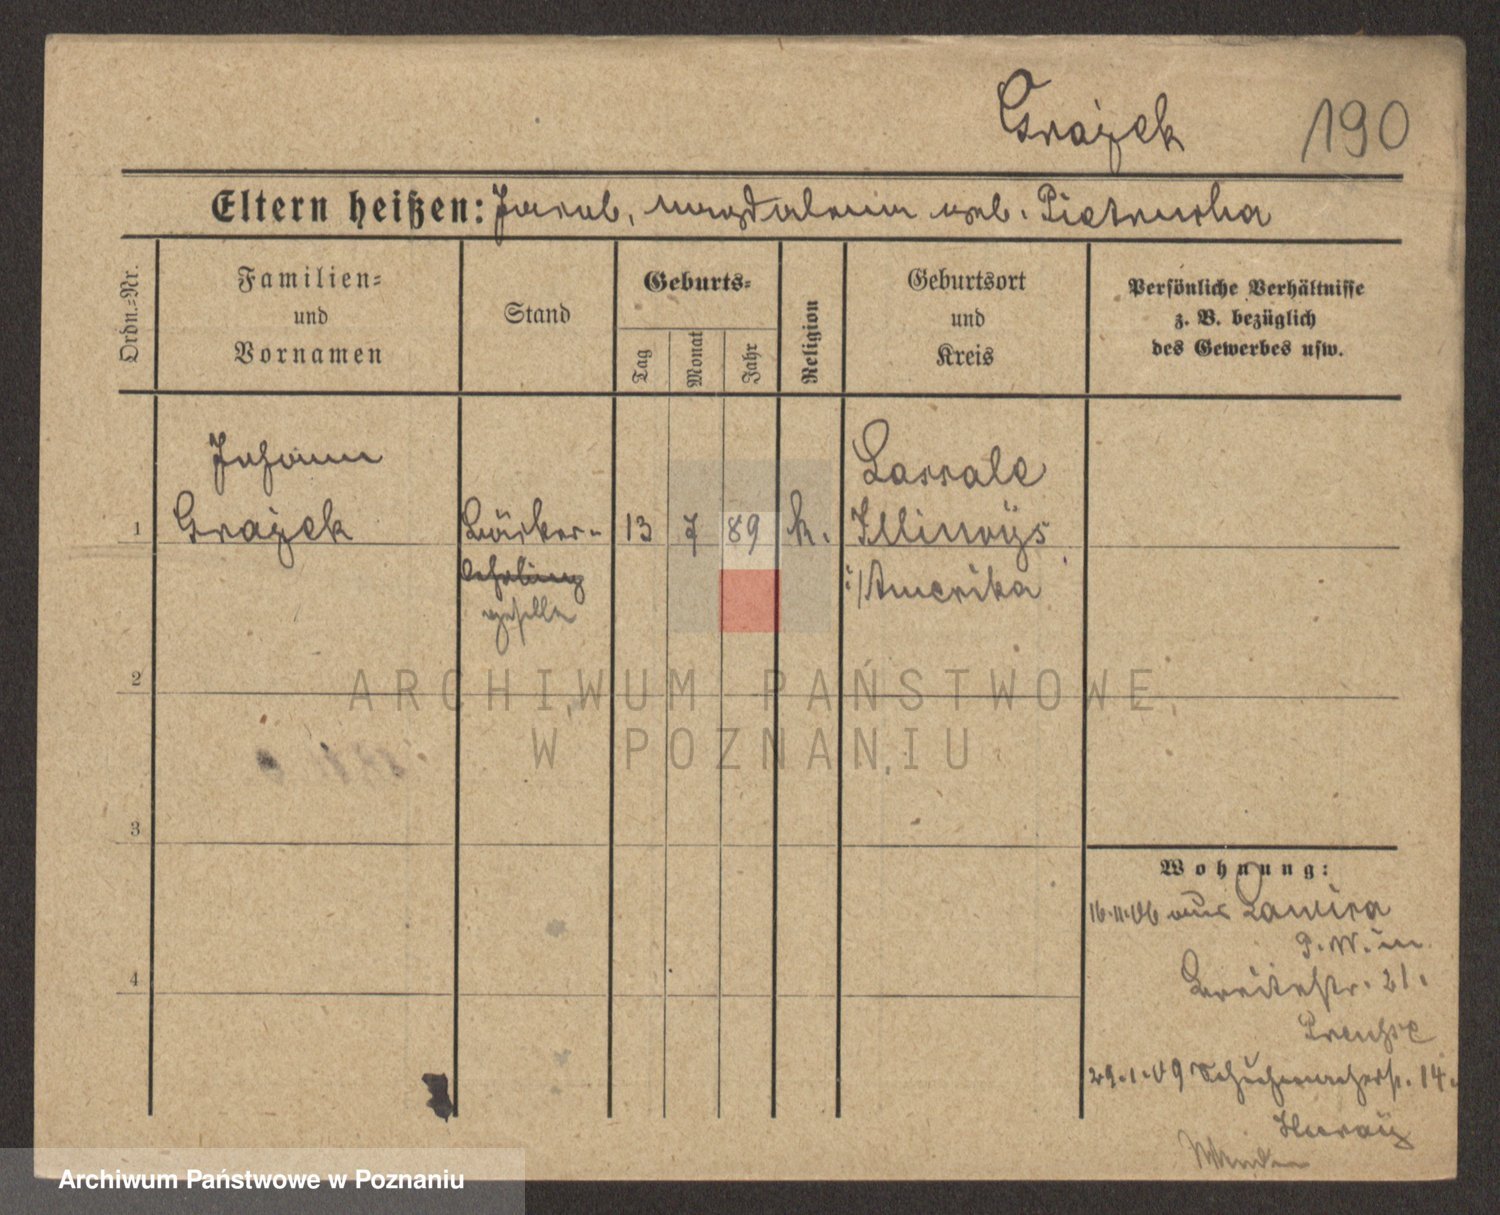 Grajek 190
Eltern heißen: Jacob, Magdalena geb. Pietruska
Ordn.-Nr.
Familien-
und
Vornamen
Stand
Geburts-
Tag
Monat
Jahr
Religion
Geburtsort
und
Kreis
Persönliche Verhältnisse
z. B. bezüglich
des Gewerbes usw.
Johann
Lassale
1 Grajek Bäcker- 13 7 89 k. Illinoijs
lehrling i/Amerika
geselle
2
ARCHIWUM PAŃSTWOWE
W POZNANIU
3
Wohnung:
16.11.06 aus
P.W. in
4
Breitestr. 21.
29.1.09 Schuhmacherstr. 14.
Archiwum Państwowe w Poznaniu